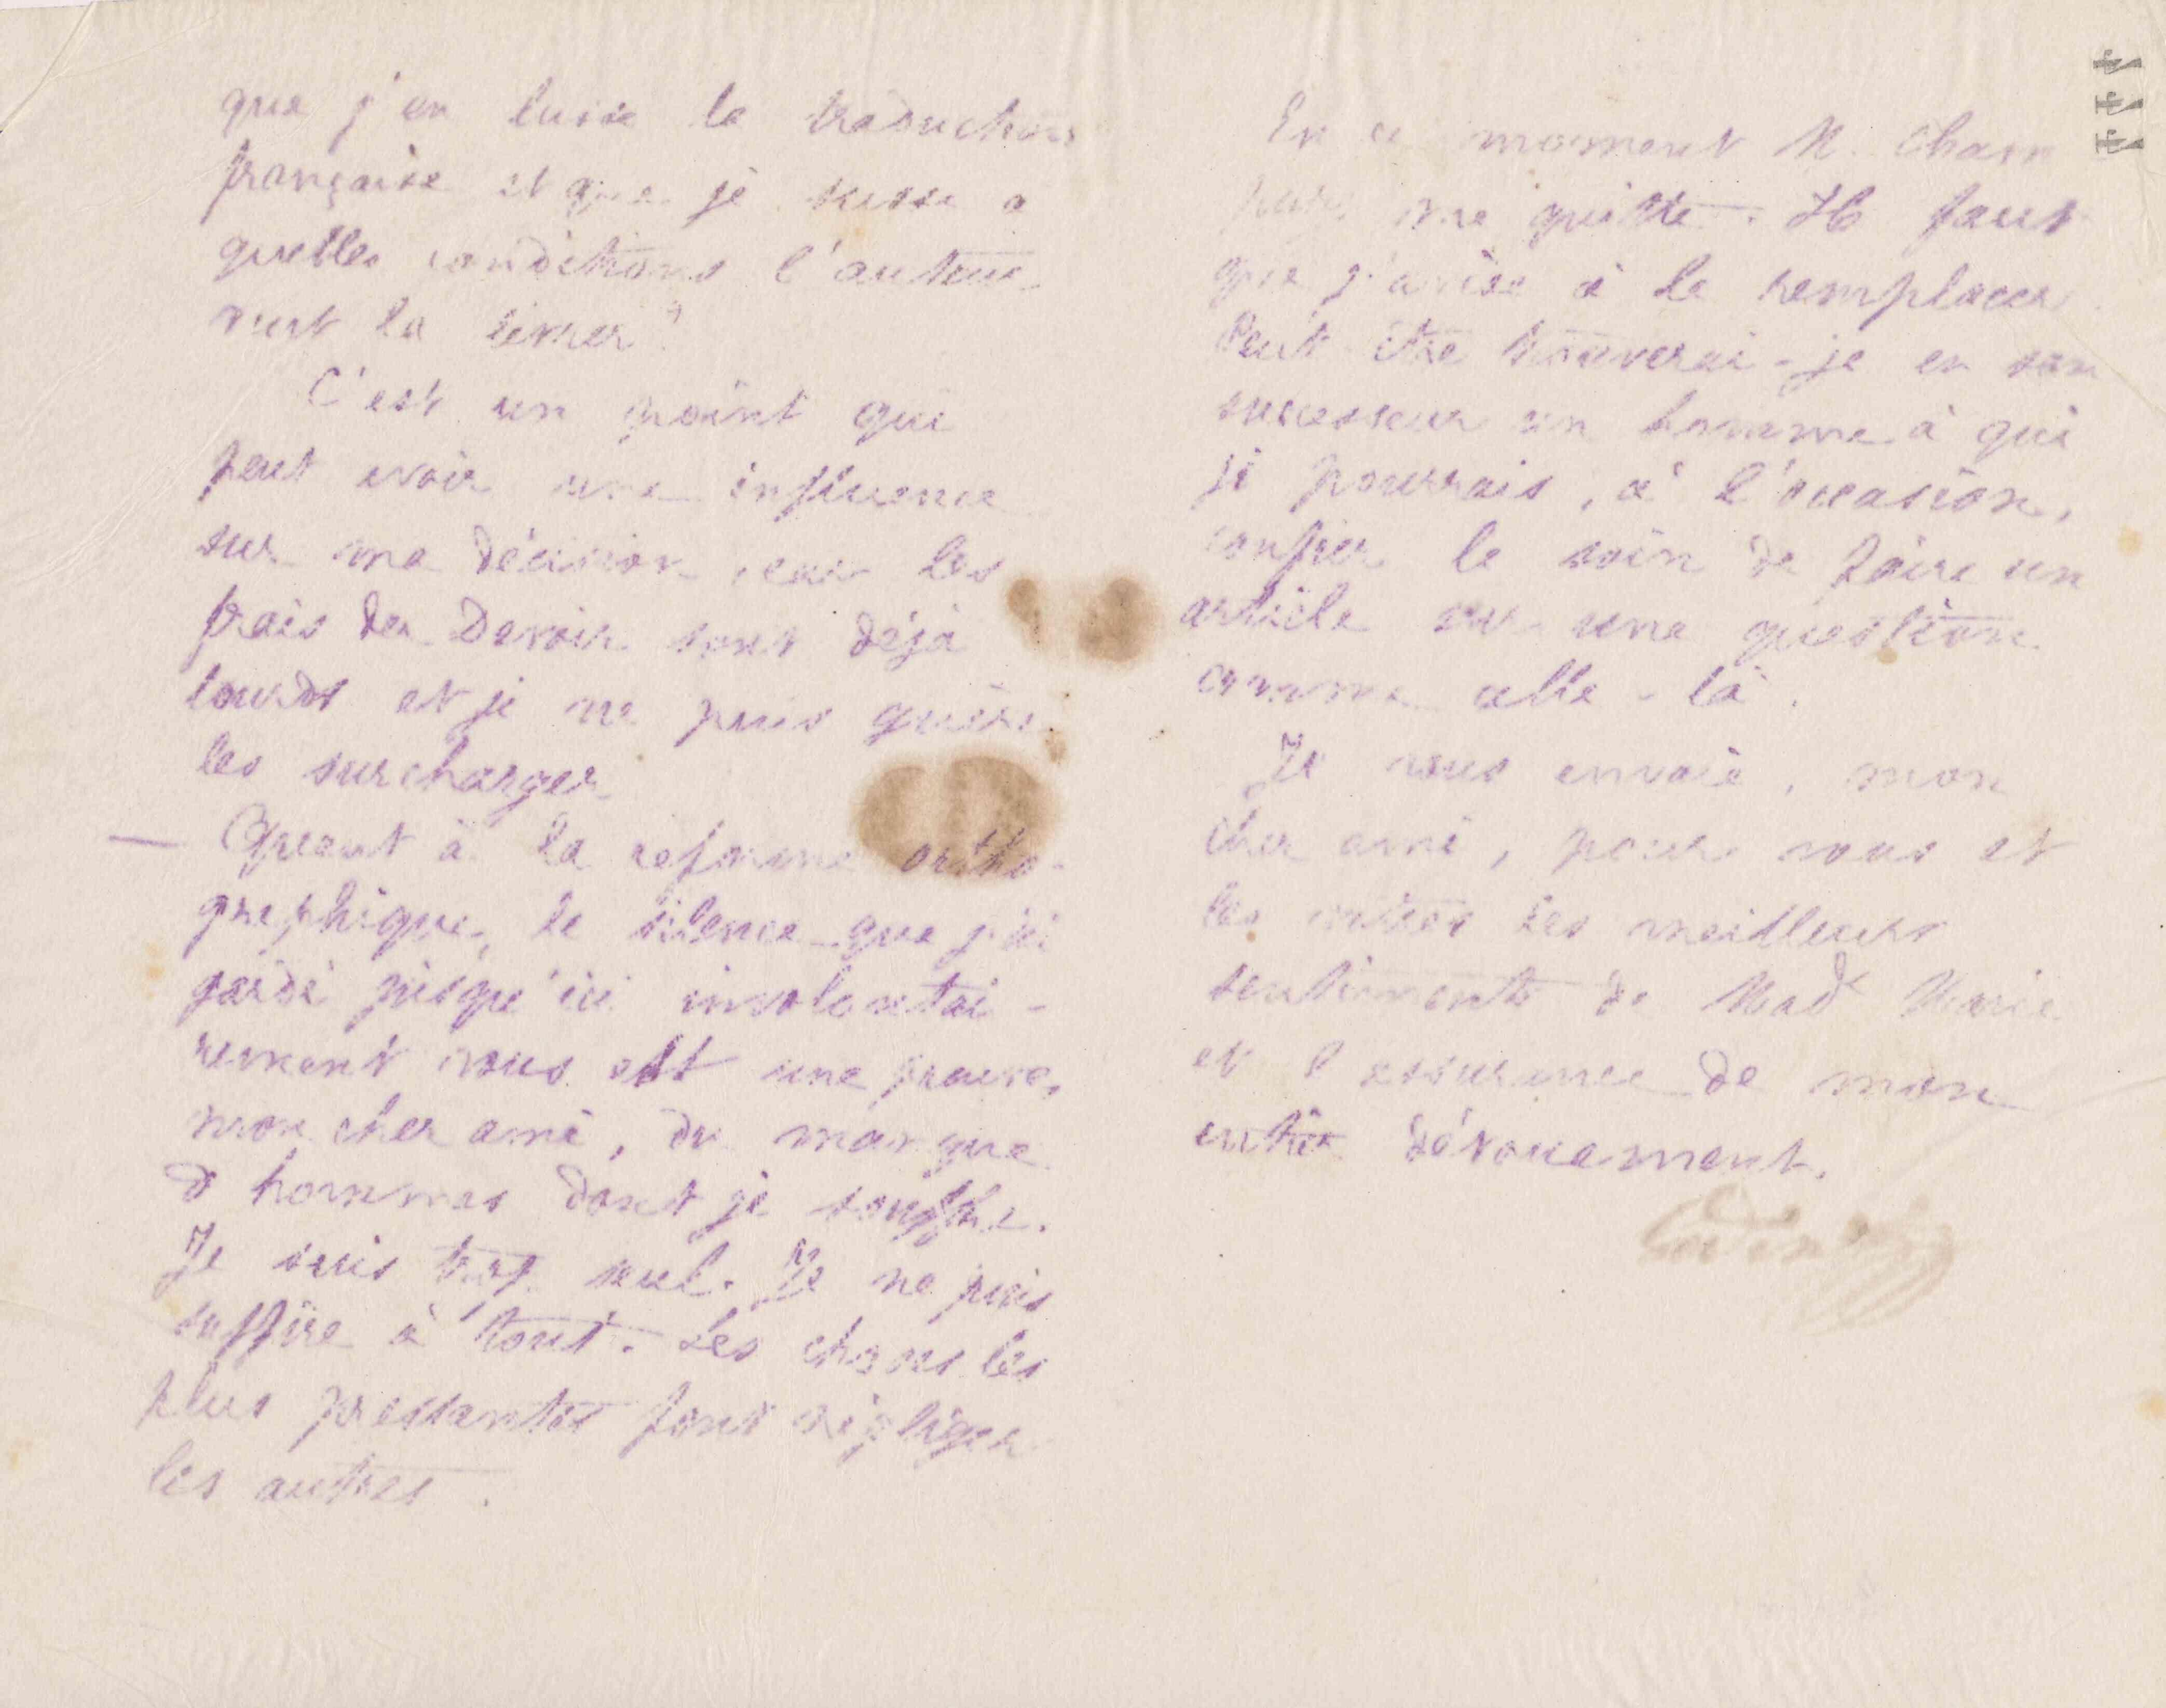 que j'en lusse la traduction
française et que je susse à
quelles conditions l'auteur
veut la livrer?
C'est un point qui
peut avoir une influence
sur ma décision car les
frais du Devoir sont déjà
lourds et je ne puis guère
les surcharger
— Quant à la réforme ortho-
graphique, le silence que j'ai
gardé jusqu'ici involontai-
rement vous est une preuve,
mon cher ami, du manque
d'hommes dont je souffre.
Je suis trop seul. Je ne puis
suffire à tout. Les choses les
plus pressantes font négliger
les autres.
En ce moment M. Cham
me quitte. Il faut
que j'avise à le remplacer
Peut être trouverai-je en son
successeur un homme à qui
je pourrais, à l'occasion,
confier le soin de faire un
article sur une question
comme celle-là.
Je vous envoie, mon
cher ami, pour vous et
les vôtres les meilleurs
sentiments de Made Marie
et l'assurance de mon
entier dévouement.
Godin